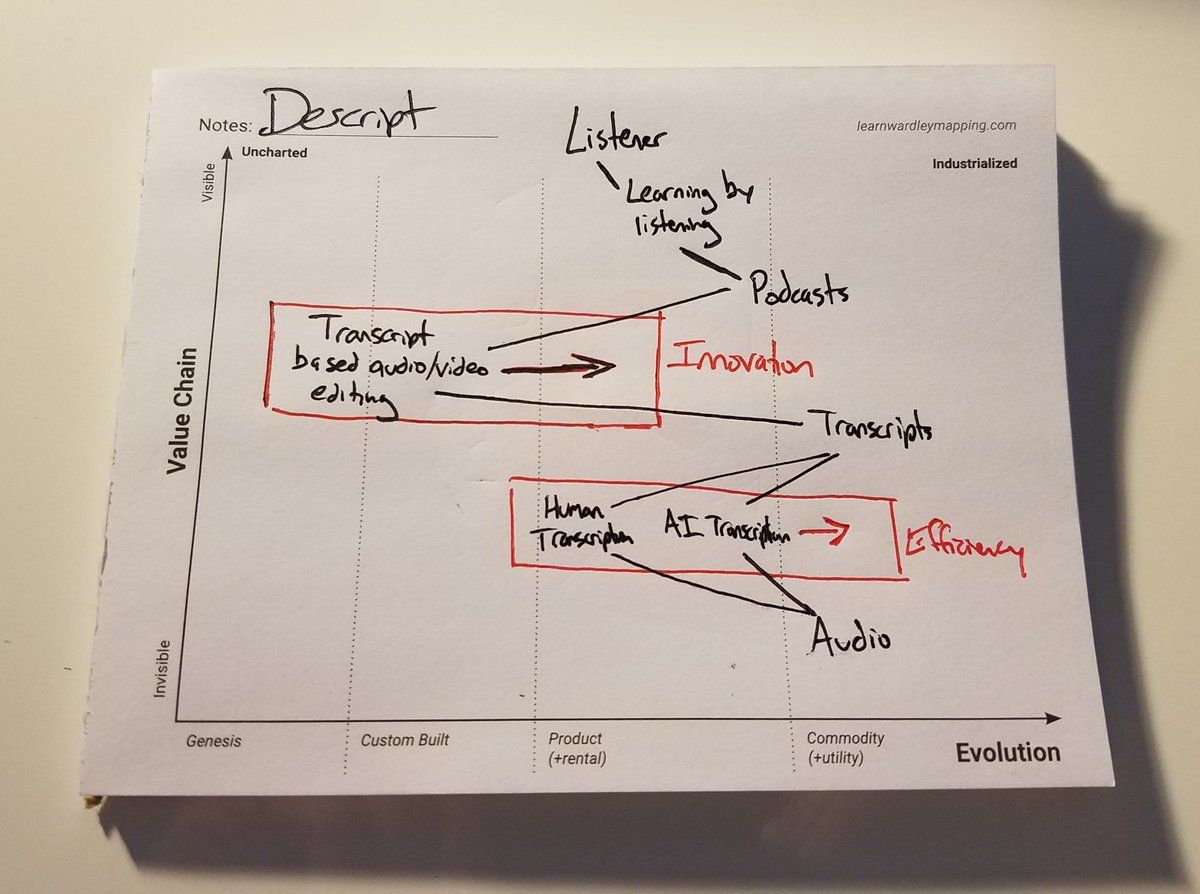 Notes: Descript
learnwardleymapping.com
Uncharted
Industrialized
Visible
Value Chain
Invisible
Listener
Learning by
listening
Podcasts
Transcript
based audio/video
editing
Innovation
Transcripts
Human
Transcription
AI Transcription
Efficiency
Audio
Genesis
Custom Built
Product
(+rental)
Commodity
(+utility)
Evolution